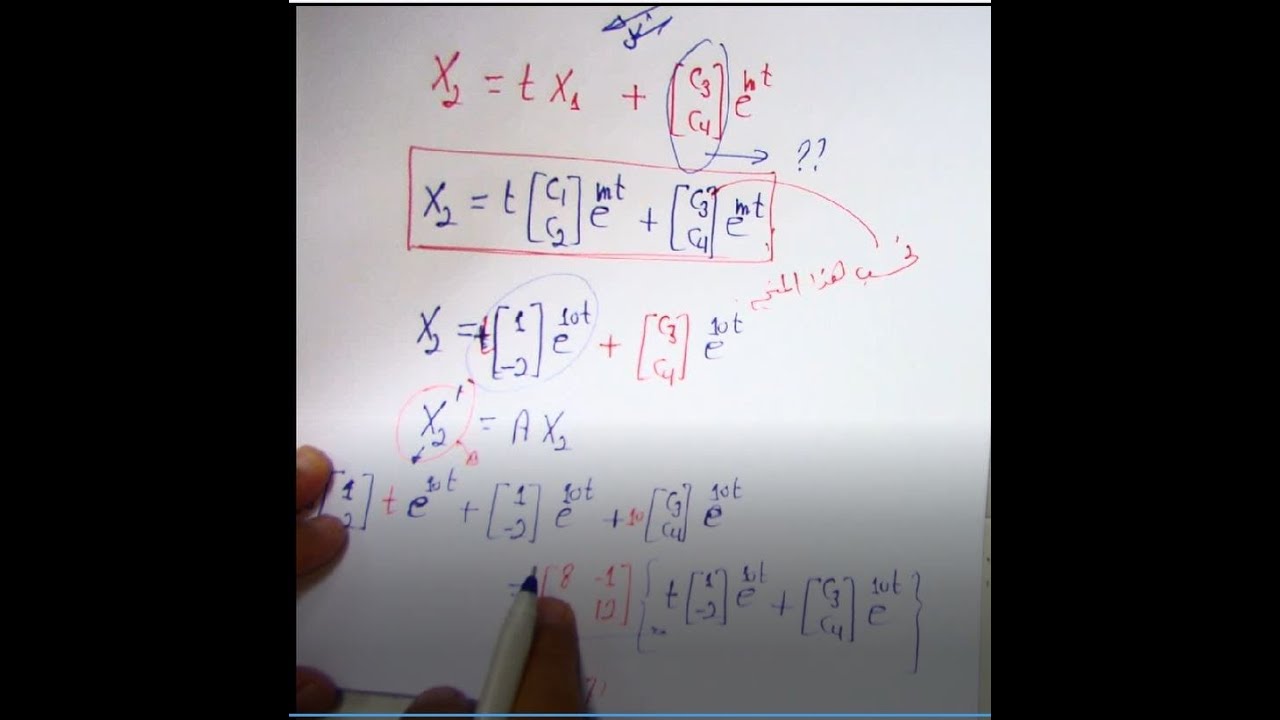 X₂ = t X₁ + [C₃ C₄] e^{mt}
→ ??
X₂ = t [C₁ C₂] e^{mt} + [C₃ C₄] e^{mt}
هذا
X₂ = t [1 -2] e^{10t} + [C₃ C₄] e^{10t}
X₂' = A X₂
t e^{10t} + [1 -2] e^{10t} + 10 [C₃ C₄] e^{10t}
= [8 -1 12] { t [1 -2] e^{10t} + [C₃ C₄] e^{10t} }